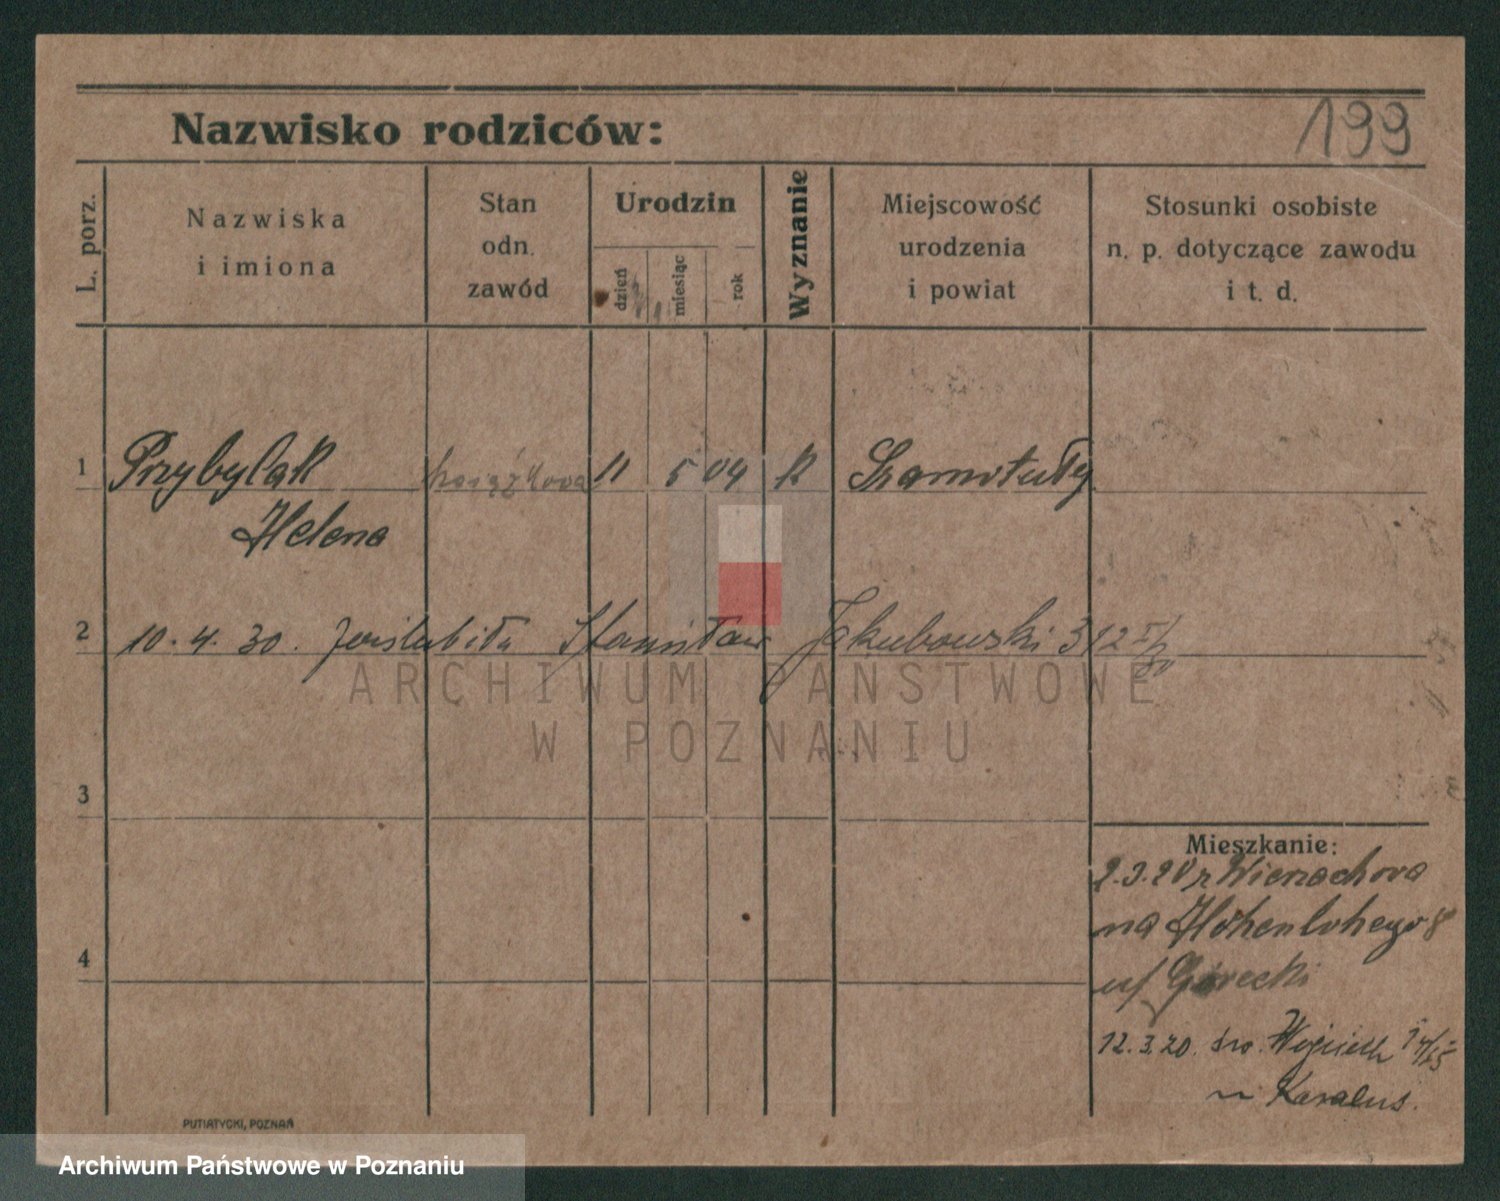 199
Nazwisko rodziców:
L. porz.
Nazwiska
i imiona
Stan
odn.
zawód
Urodzin
dzień
miesiąc
rok
Wyznanie
Miejscowość
urodzenia
i powiat
Stosunki osobiste
n. p. dotyczące zawodu
i t. d.
1 Przybylak 11 5 04 k Szamotuły
Helena
2 10. 4. 30. Stanisław Jakubowski 312
ARCHIWUM PAŃSTWOWE
W POZNANIU
3
4
Mieszkanie:
2.3.20 z
na Hohenlohego 8
u/ Górecki
12.3.20. św. Wojciech
PUTIATYCKI, POZNAŃ
Archiwum Państwowe w Poznaniu